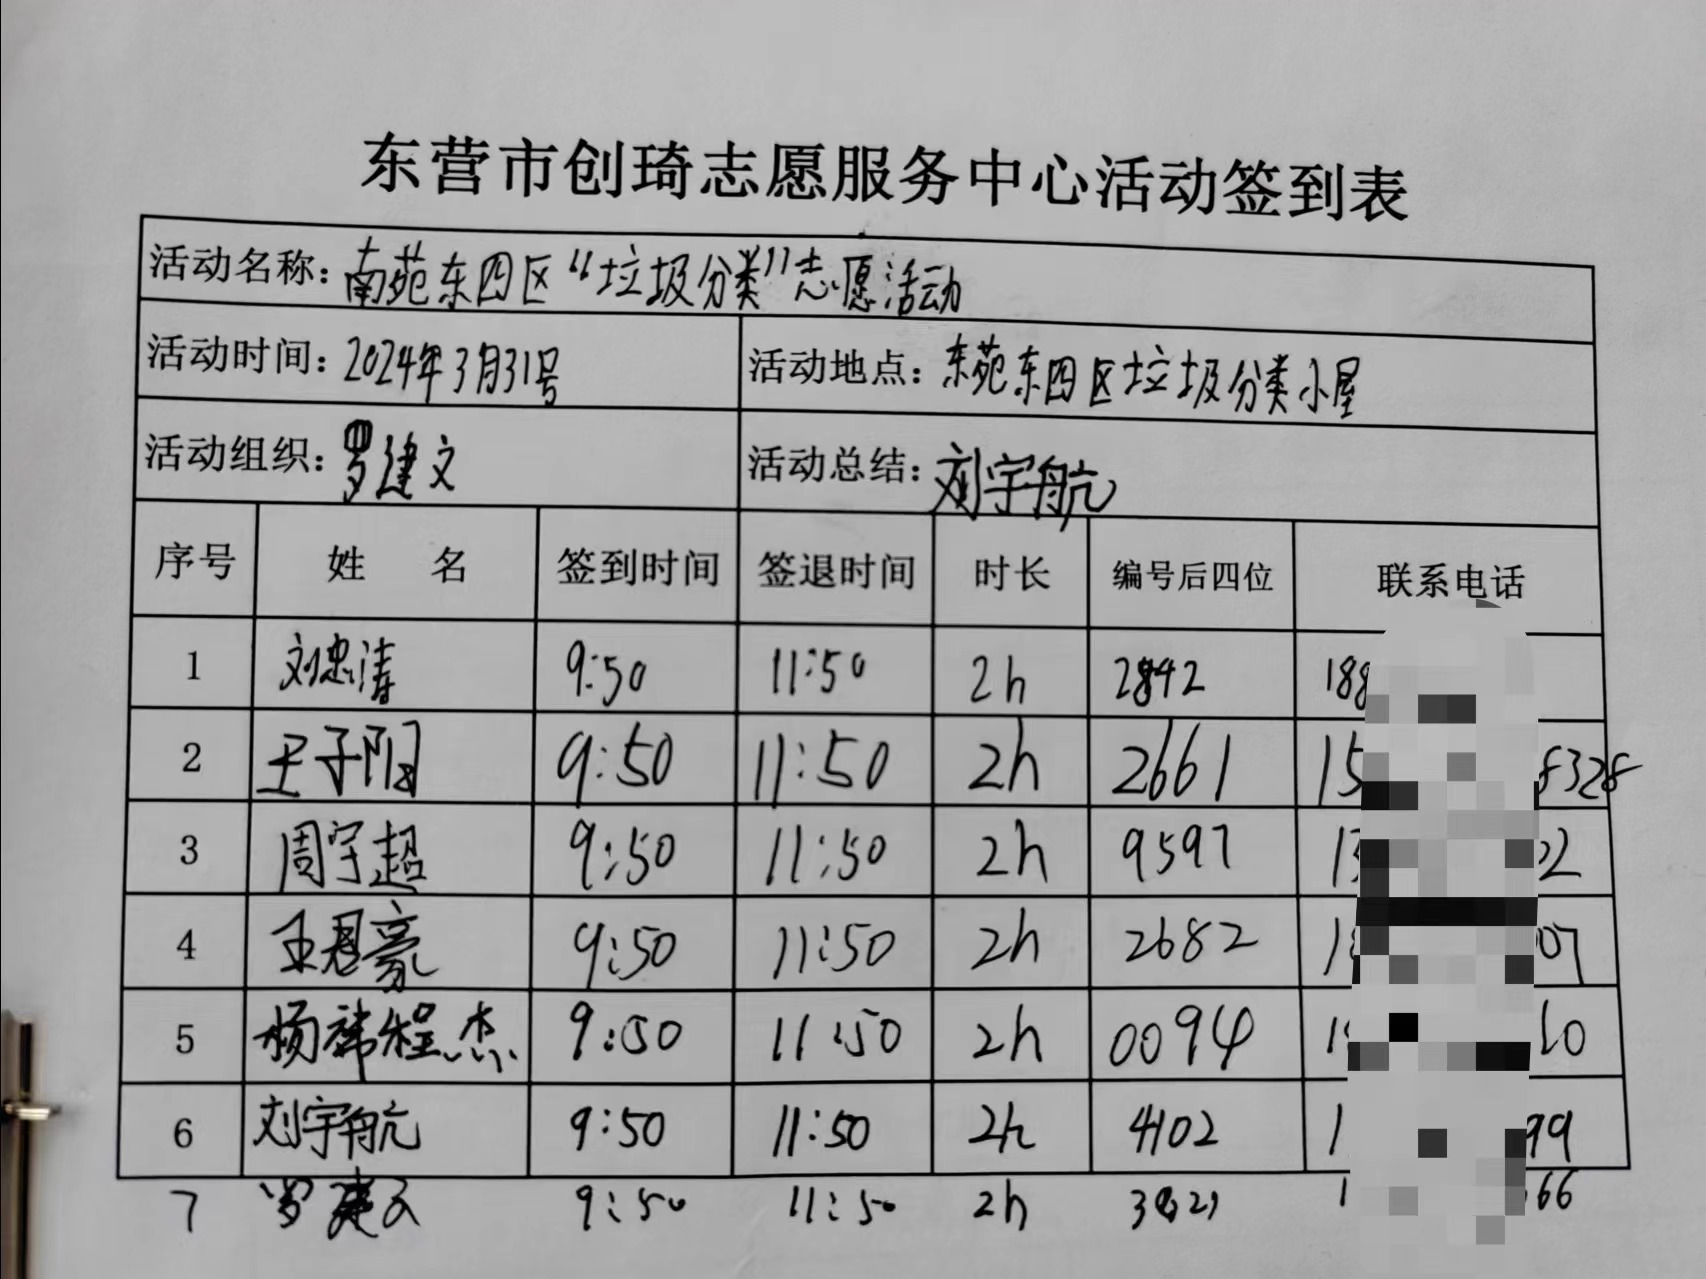 东营市创琦志愿服务中心活动签到表
活动名称：南苑东四区“垃圾分类”志愿活动
活动时间：2024年3月31号 活动地点：东苑东四区垃圾分类小屋
活动组织：罗建文 活动总结：刘宇航
序号 姓 名 签到时间 签退时间 时长 编号后四位 联系电话
1 刘忠涛 9:50 11:50 2h 2842 188
2 王子阳 9:50 11:50 2h 2661 15 8328
3 周宇超 9:50 11:50 2h 9597 13 02
4 王恩豪 9:50 11:50 2h 2682 18 07
5 杨祎程杰 9:50 11:50 2h 0094 1 10
6 刘宇航 9:50 11:50 2h 4102 1 99
7 罗建文 9:50 11:50 2h 1 66